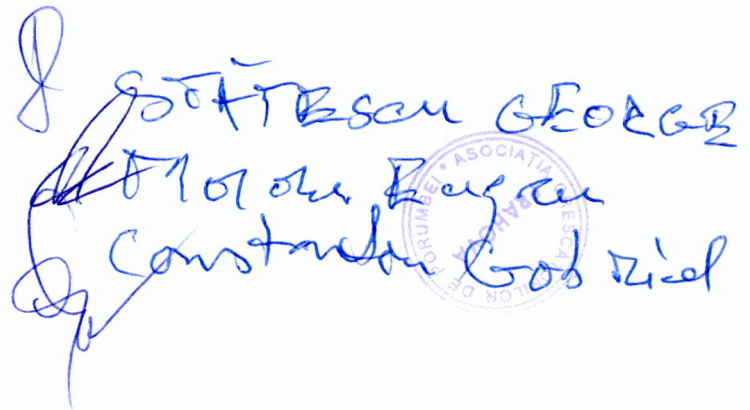 STĂTESCU GEORGE
Eugen
Constantin Gabriel
ASOCIAȚIA CRESCĂTORILOR DE PORUMBEI
PRAHOVA